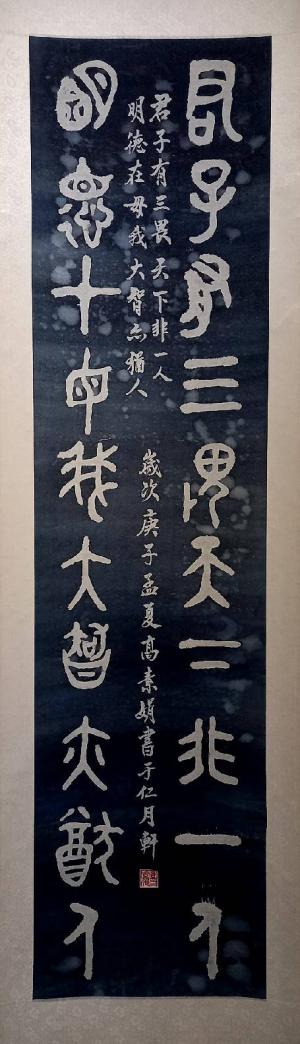 君子有三畏天下非一人
明德在毋我大智亦猶人
君子有三畏天下非一人
明德在毋我大智亦猶人
歲次庚子孟夏高素娟書于仁月軒